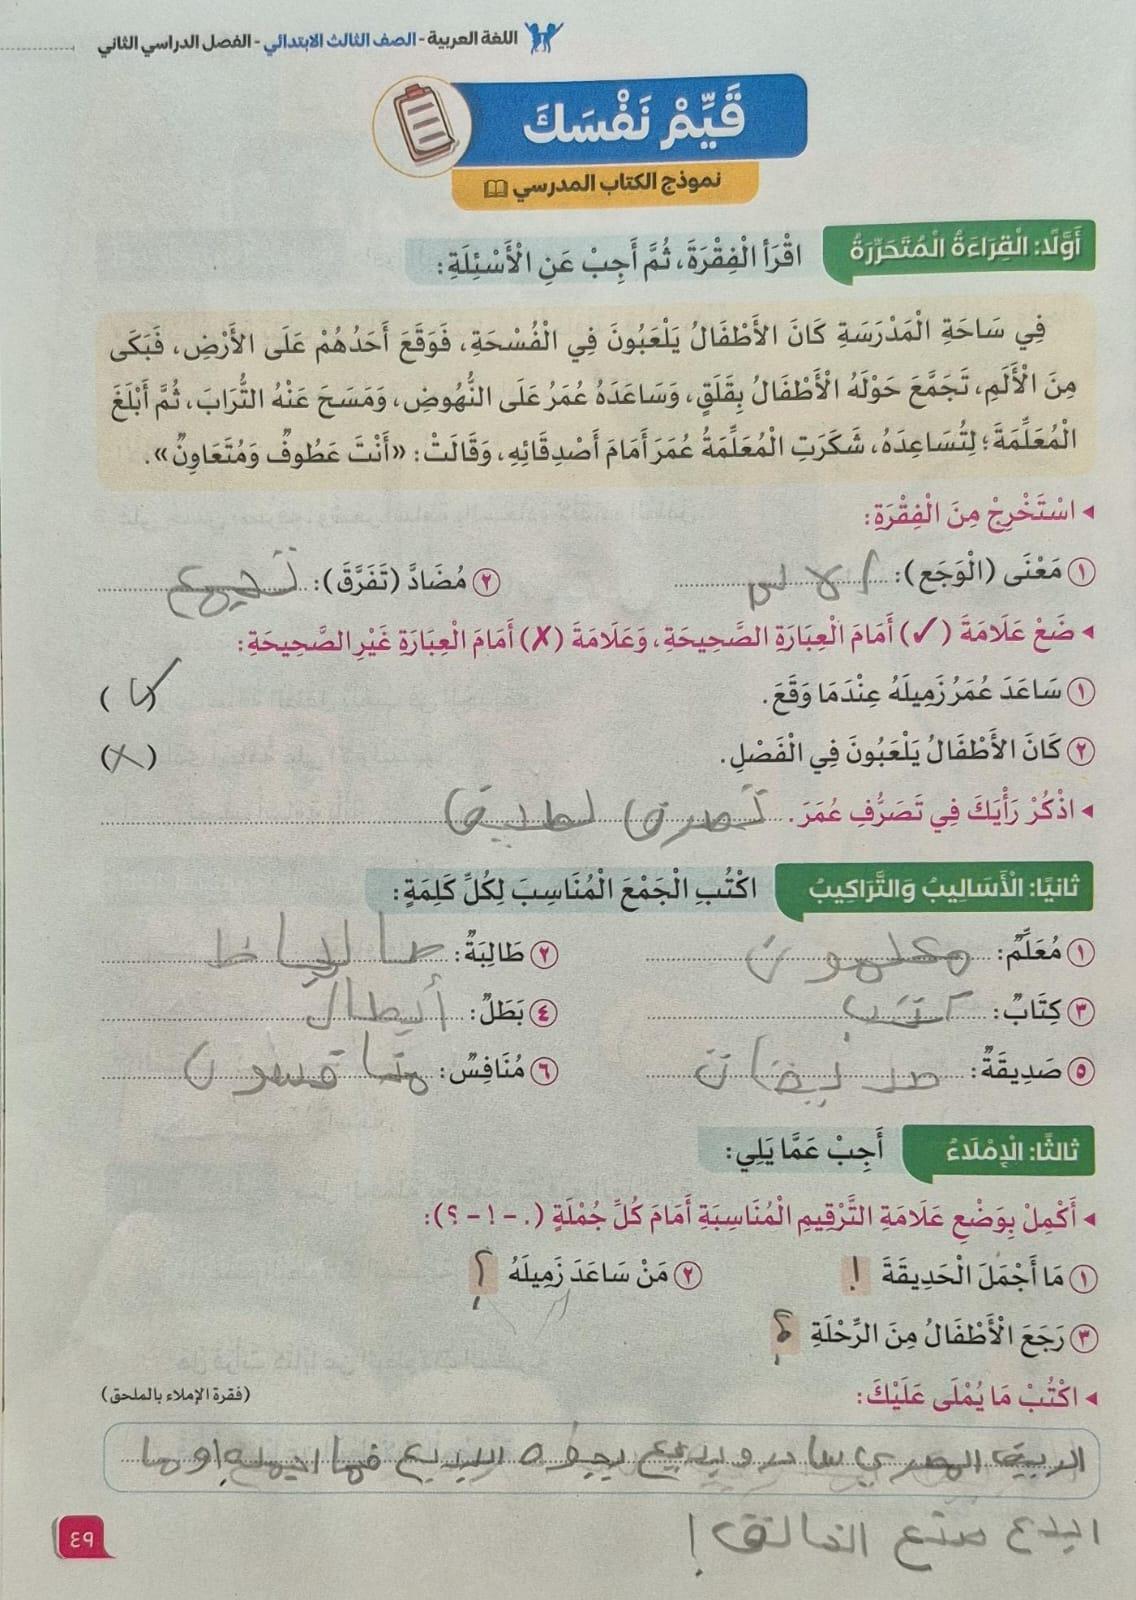 اللغة العربية - الصف الثالث الابتدائي - الفصل الدراسي الثاني
قَيِّمْ نَفْسَكَ
نموذج الكتاب المدرسي
أَوَّلًا: الْقِرَاءَةُ الْمُتَحَرِّرَةُ اقْرَأِ الْفِقْرَةَ، ثُمَّ أَجِبْ عَنِ الْأَسْئِلَةِ:
فِي سَاحَةِ الْمَدْرَسَةِ كَانَ الأَطْفَالُ يَلْعَبُونَ فِي الْفُسْحَةِ، فَوَقَعَ أَحَدُهُمْ عَلَى الأَرْضِ، فَبَكَى
مِنَ الْأَلَمِ، تَجَمَّعَ حَوْلَهُ الْأَطْفَالُ بِقَلَقٍ، وَسَاعَدَهُ عُمَرُ عَلَى النُّهُوضِ، وَمَسَحَ عَنْهُ التُّرَابَ، ثُمَّ أَبْلَغَ
الْمُعَلِّمَةَ؛ لِتُسَاعِدَهُ، شَكَرَتِ الْمُعَلِّمَةُ عُمَرَ أَمَامَ أَصْدِقَائِهِ، وَقَالَتْ: «أَنْتَ عَطُوفٌ وَمُتَعَاوِنٌ».
◂ اسْتَخْرِجْ مِنَ الْفِقْرَةِ:
١ مَعْنَى (الْوَجَع): ٢ مُضَادَّ (تَفَرَّقَ): تجمع
◂ ضَعْ عَلَامَةَ (✓) أَمَامَ الْعِبَارَةِ الصَّحِيحَةِ، وَعَلَامَةَ (✗) أَمَامَ الْعِبَارَةِ غَيْرِ الصَّحِيحَةِ:
١ سَاعَدَ عُمَرُ زَمِيلَهُ عِنْدَمَا وَقَعَ. (✓)
٢ كَانَ الأَطْفَالُ يَلْعَبُونَ فِي الْفَصْلِ. (✗)
◂ اذْكُرْ رَأْيَكَ فِي تَصَرُّفِ عُمَرَ.
ثَانِيًا: الْأَسَالِيبُ وَالتَّرَاكِيبُ اكْتُبِ الْجَمْعَ الْمُنَاسِبَ لِكُلِّ كَلِمَةٍ:
١ مُعَلِّمٌ: معلمون ٢ طَالِبَةٌ:
٣ كِتَابٌ: كتب ٤ بَطَلٌ: أبطال
٥ صَدِيقَةٌ: صديقات ٦ مُنَافِسٌ:
ثَالِثًا: الْإِمْلَاءُ أَجِبْ عَمَّا يَلِي:
◂ أَكْمِلْ بِوَضْعِ عَلَامَةِ التَّرْقِيمِ الْمُنَاسِبَةِ أَمَامَ كُلِّ جُمْلَةٍ (. - ! - ؟):
١ مَا أَجْمَلَ الْحَدِيقَةَ ! ٢ مَنْ سَاعَدَ زَمِيلَهُ ؟
٣ رَجَعَ الْأَطْفَالُ مِنَ الرِّحْلَةِ
◂ اكْتُبْ مَا يُمْلَى عَلَيْكَ: (فقرة الإملاء بالملحق)
المصري
ابدع صنع الخالق !
٤٩